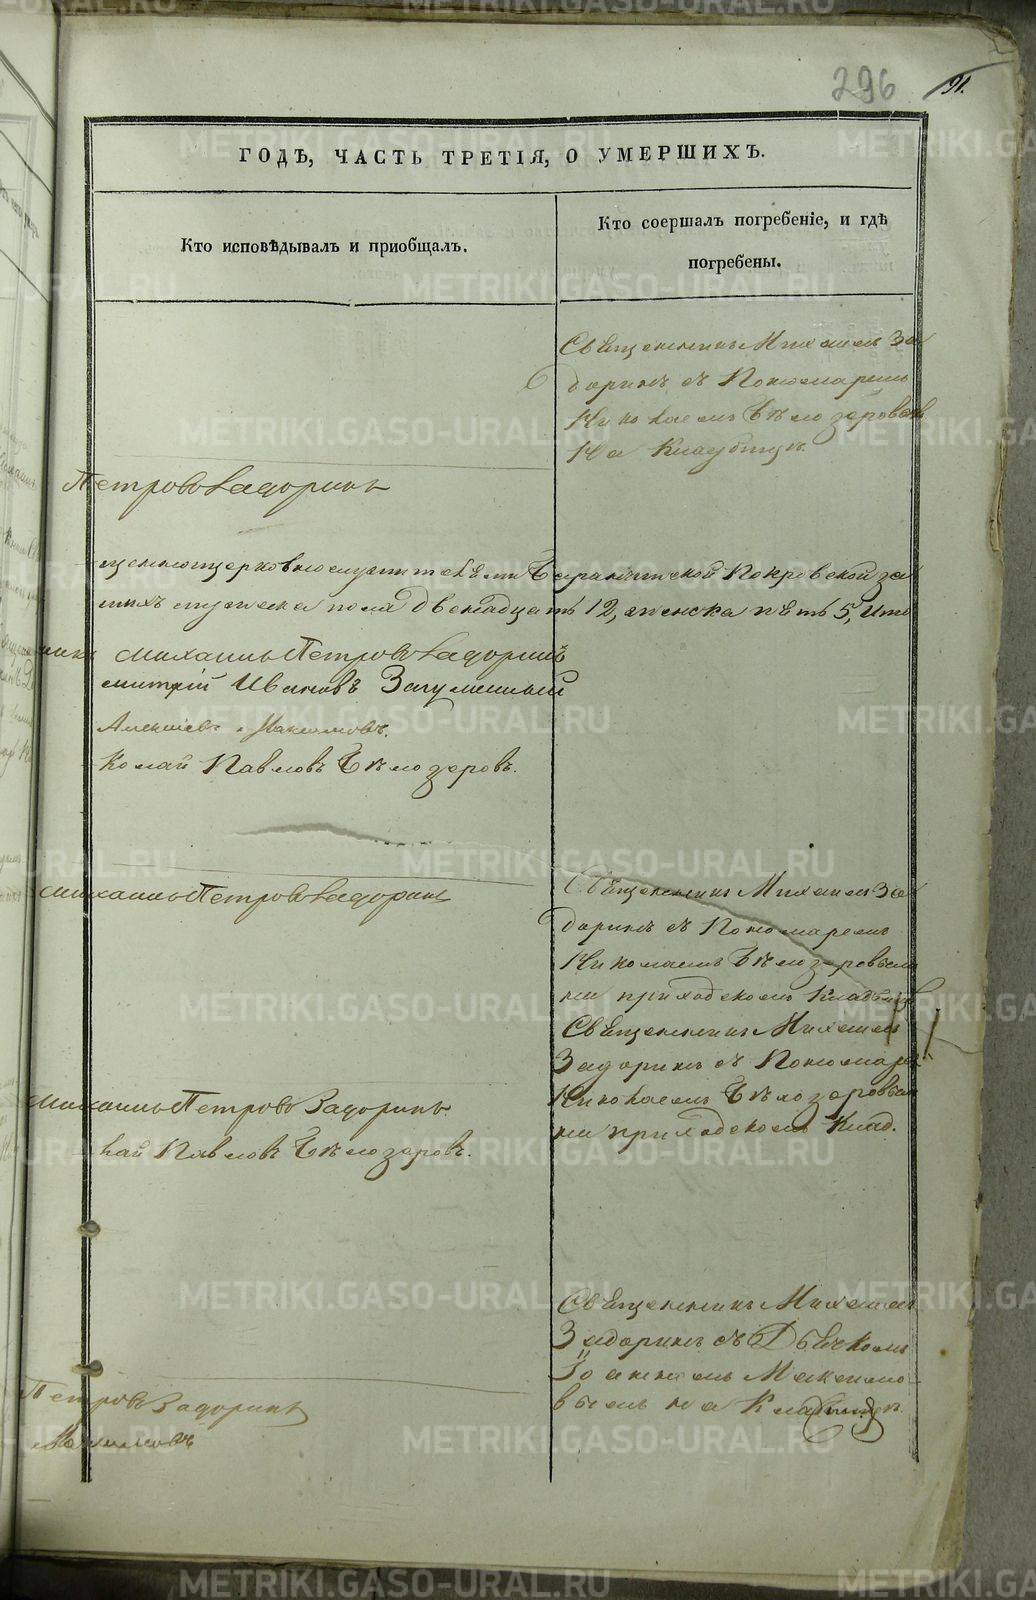 296 91.
ГОДѢ, ЧАСТЬ ТРЕТІЯ, О УМЕРШИХЪ.
Кто исповѣдывалъ и приобщалъ.
Кто соершалъ погребеніе, и гдѣ
погребены.
Священникъ Михаилъ За
доринъ съ Пономаремъ
Николаемъ Бѣлозеровымъ
На Кладбищѣ
Петровъ Задоринъ
щенноцерковнослужителями Покровской за
мужеска пола двенадцать 12, женска пять 5, Ито
Михаилъ Петровъ Задоринъ
митрій Ивановъ Загуменный
Алексѣевъ Максимовъ.
колай Павловъ Бѣлозеровъ.
Михаилъ Петровъ Задоринъ
Священникъ Михаилъ За
доринъ съ Пономаремъ
Николаемъ Бѣлозеровымъ
на приходскомъ Кладбищѣ
Священникъ Михаилъ
Задоринъ съ Пономаре
Николаемъ Бѣлозеровым
на приходскомъ Клад.
Михаилъ Петровъ Задоринъ
лай Павловъ Бѣлозеровъ.
Священникъ Михаилъ
Задоринъ съ Дьячкомъ
Іоанномъ Максимо
вымъ на Кладбищѣ.
Петровъ Задоринъ
Максимовъ
METRIKI.GASO-URAL.RU